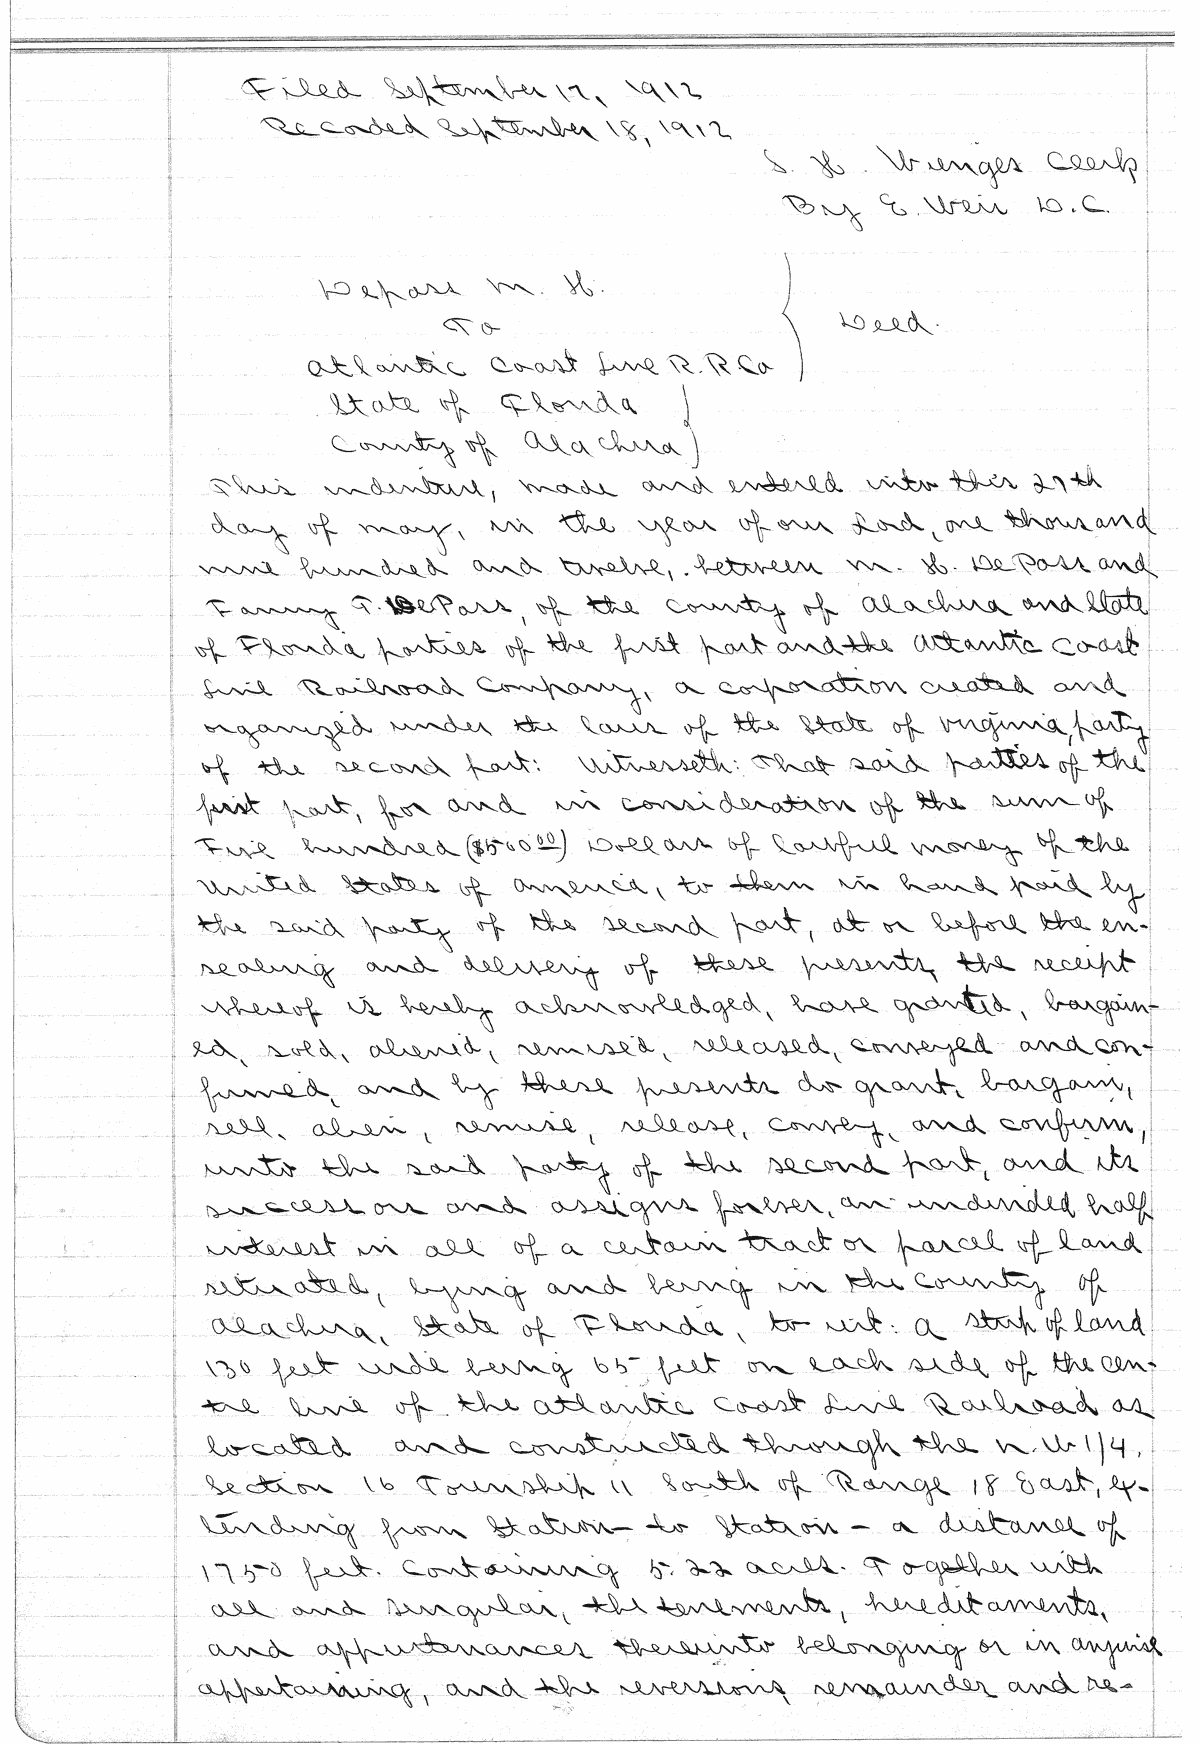 Filed September 17, 1912
Recorded September 18, 1912
S. H. Wienges Clerk
By E. Weir D.C.
Depass M. H.
To
Deed.
Atlantic Coast Line R.R Co
State of Florida
County of Alachua
This indenture, made and entered into this 27th
day of May, in the year of our Lord, one thousand
nine hundred and twelve, between M. H. DePass and
Fanny T. DePass, of the County of Alachua and State
of Florida parties of the first part and the Atlantic Coast
Line Railroad Company, a corporation created and
organized under the laws of the State of Virginia, party
of the second part: Witnesseth: That said parties of the
first part, for and in consideration of the sum of
Five hundred ($500.00) Dollars of lawful money of the
United States of America, to them in hand paid by
the said party of the second part, at or before the en-
sealing and delivery of these presents, the receipt
whereof is hereby acknowledged, have granted, bargain-
ed, sold, aliened, remised, released, conveyed and con-
firmed, and by these presents do grant, bargain,
sell, alien, remise, release, convey, and confirm,
unto the said party of the second part, and its
successors and assigns forever, an undivided half
interest in all of a certain tract or parcel of land
situated, lying and being in the County of
Alachua, State of Florida, to wit: A strip of land
130 feet wide being 65 feet on each side of the cen-
tre line of the Atlantic Coast Line Railroad as
located and constructed through the N.W 1/4,
Section 16 Township 11 South of Range 18 East, ex-
tending from Station - to Station - a distance of
1750 feet. Containing 5.22 acres. Together with
all and singular, the tenements, hereditaments,
and appurtenances thereunto belonging or in anywise
appertaining, and the reversions, remainder and re-